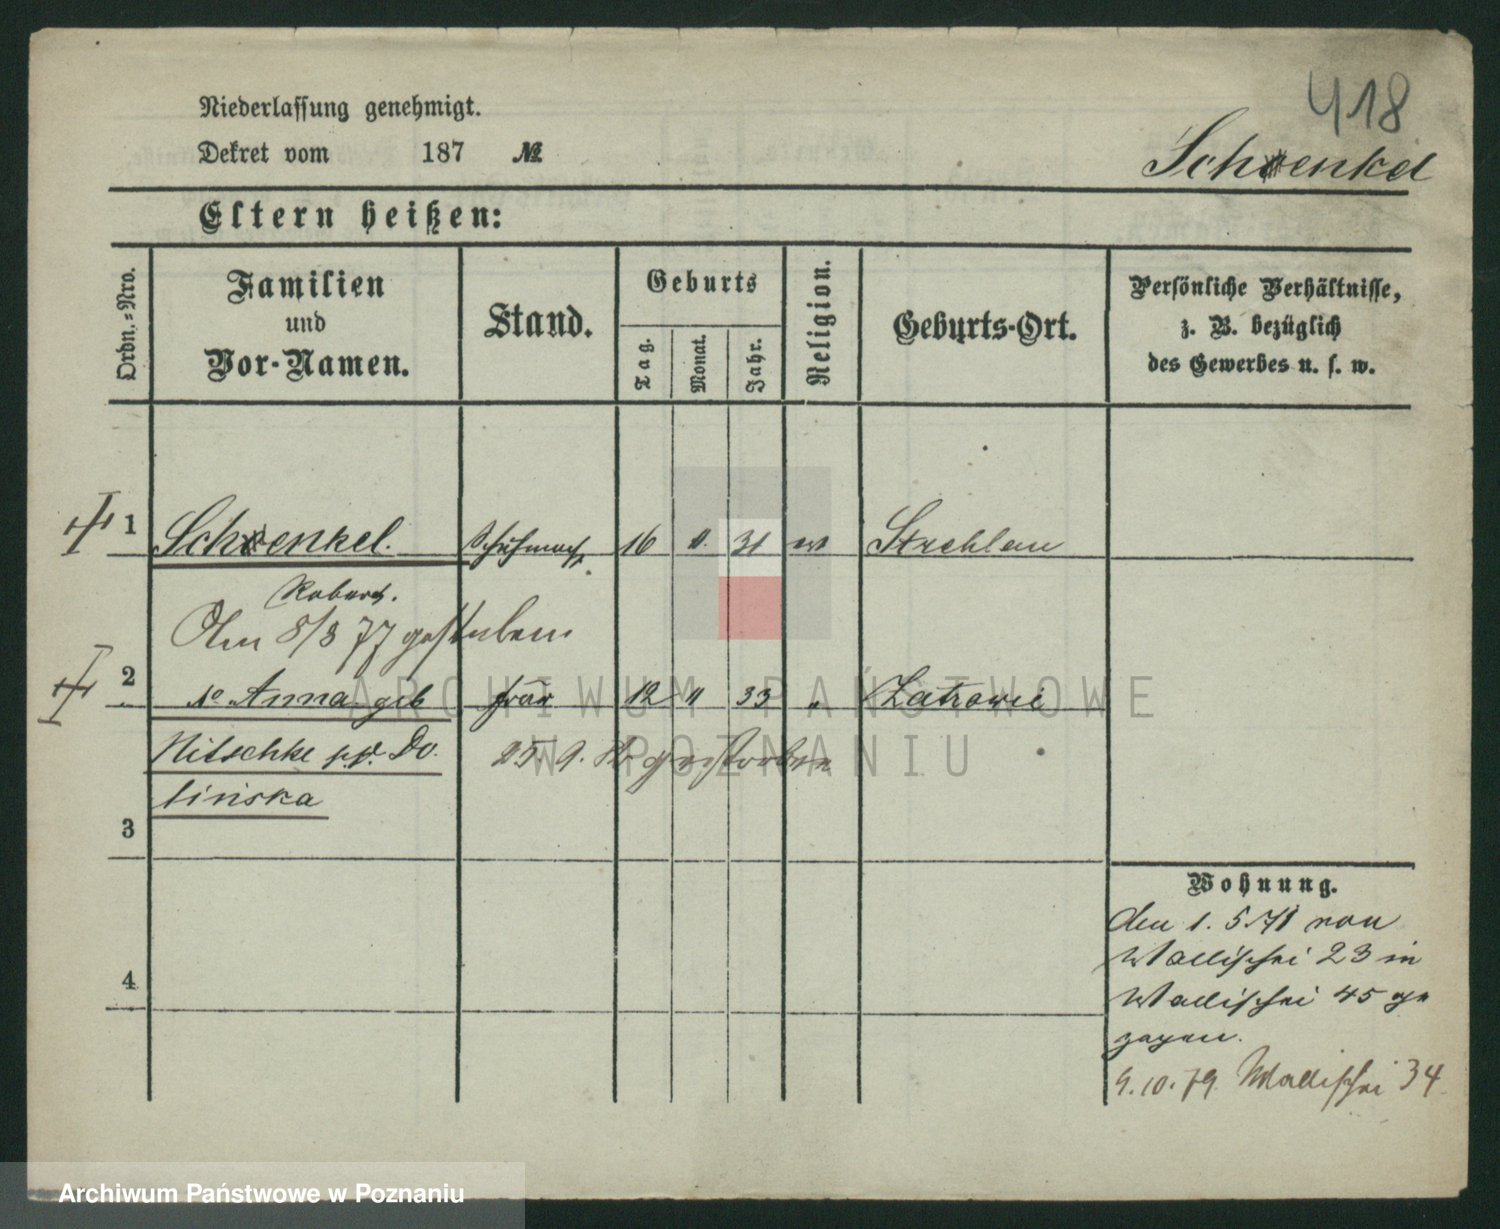 418
Niederlassung genehmigt.
Dekret vom 187 №
Schenkel
Eltern heißen:
Ordn.-Nro.
Familien
und
Vor-Namen.
Stand.
Geburts
Tag.
Monat.
Jahr.
Religion.
Geburts-Ort.
Persönliche Verhältnisse,
z. B. bezüglich
des Gewerbes u. s. w.
1 Schenkel. 16 31 Strehlau
Robert.
Am 8/8 77 gestorben
2 Anna geb Frau 12 " 33 "
Nitschke Do
linska
25. 9. gestorben
3
4
Wohnung.
den 1. 5 71 von
Wallischei 23 in
Wallischei 45 ge
zogen.
9. 10. 79. Wallischei 34
ARCHIWUM PAŃSTWOWE
W POZNANIU
Archiwum Państwowe w Poznaniu